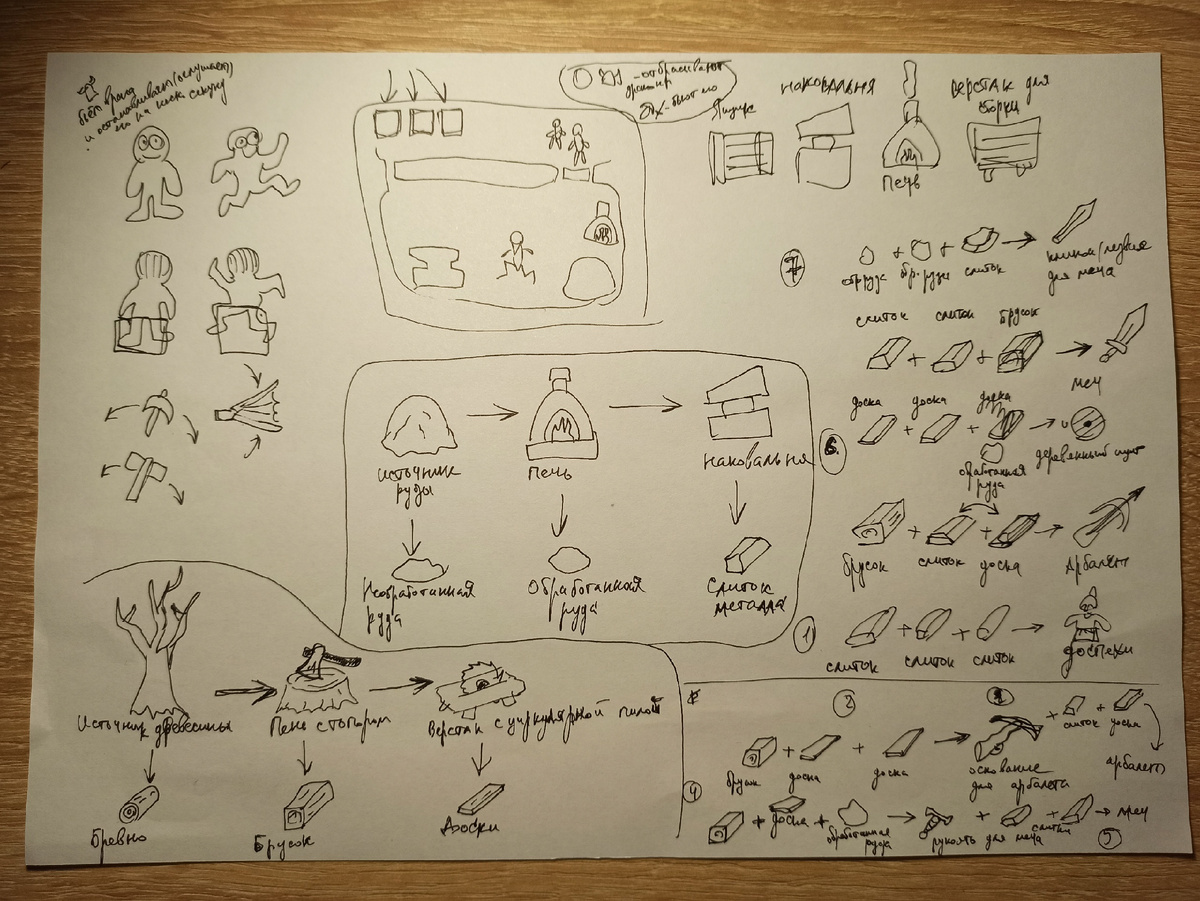 бьёт врага
и останавливает (оглушает)
его на пару секунд
- отбрасывают
- бьют его
Ящик
наковальня
Печь
Верстак для
сборки
7
обр. руда
слиток
клинок/лезвие
для меча
слиток
слиток
брусок
меч
доска
доска
доска
6.
обработанная
руда
деревянный щит
Брусок
слиток
доска
Арбалет
1
слиток
слиток
слиток
доспехи
источник
руды
Печь
наковальня
Необработанная
руда
Обработанная
руда
Слиток
металла
Источник древесины
Пень с топором
Верстак с циркулярной пилой
Бревно
Брусок
Доски
2
брусок
доска
доска
основание
для арбалета
слиток
доска
арбалет
4
доска
обработанная
руда
рукоять для меча
слитки
меч
5